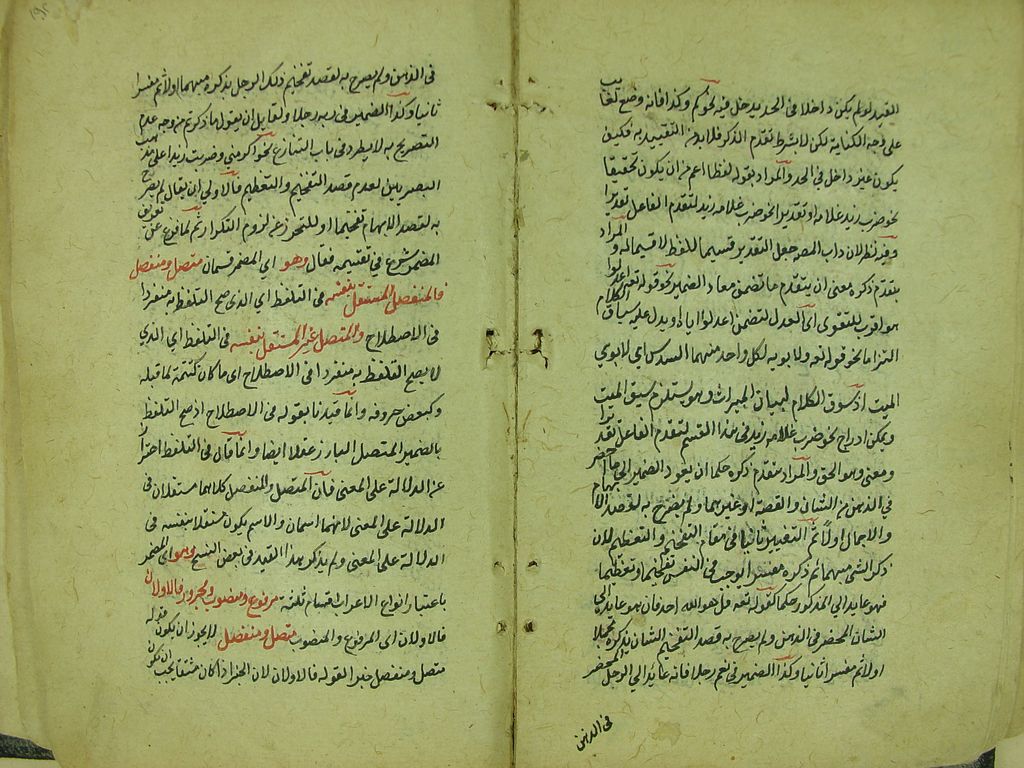 القيد لو لم يكن داخلا في الحد يدخل فيه نحو كم وكذا فانه وضع لغايب
على وجه الكناية لكن لا بشرط تقدم الذكر فلا بد من التقييد به فكيف
يكون غير داخل في الحد والمراد بقوله لفظا اعم من ان يكون تحقيقا
نحو ضرب زيد غلامه او تقديرا نحو ضرب غلامه زيد لتقدم الفاعل تقديرا
وفيه نظر لان داب المصنف جعل التقدير قسيما للفظ لا قسما له والمراد
بتقدم ذكره معنى ان يتقدم ما تضمن معاد الضمير نحو قوله تعالى اعدلوا
هو اقرب للتقوى اي العدل لتضمن اعدلوا اياه او يدل عليه سياق الكلام
التزاما نحو قوله تعالى ولابويه لكل واحد منهما السدس اي لابوي
الميت اذ سوق الكلام لبيان الميراث وهو يستلزم سبق الميت
ويمكن ادراج نحو ضرب غلامه زيد في هذا القسم لتقدم الفاعل تقديرا
ومعنى وهو الحق والمراد بتقدم ذكره حكما ان يعود الضمير الى ما حضر
في الذهن من الشان والقصة او غيرهما ولم يصرح به لقصد الابهام
والاجمال اولا ثم التفسير ثانيا في مقام التفخيم والتعظيم لان
ذكر الشئ مبهما ثم ذكره مفسرا يوجب في النفس تفخيما وتعظيما
فهو عايد الى المذكور حكما كقوله تعالى قل هو الله احد فان هو عايد الى
الشان المحضر في الذهن ولم يصرح به قصد التفخيم الشان بذكره مجملا
اولا ثم مفسرا ثانيا وكذا الضمير في نعم رجلا فانه عايد الى الرجل المحضر
في الذهن
في الذهن ولم يصرح به لقصد تفخيم ذلك الرجل بذكره مبهما اولا ثم مفسرا
ثانيا وكذا الضمير في ربه رجلا ولقايل ان يقول ما ذكرتم من وجه عدم
التصريح به لا يطرد في باب التنازع نحو اكرمني وضربت زيدا على مذهب
البصريين لعدم قصد التفخيم والتعظيم فالاولى ان يقال لم يصرح
به لقصد الابهام تفخيما او للتحرز عن لزوم التكرار ثم لما فرغ عن تعريف
المضمر شرع في تقسيمه فقال وهو اي المضمر قسمان متصل ومنفصل
فالمنفصل المستقل بنفسه في التلفظ اي الذي صح التلفظ به منفردا
في الاصطلاح والمتصل غير المستقل بنفسه في التلفظ اي الذي
لا يصح التلفظ به منفردا في الاصطلاح اي ما كان كتتمة لما قبله
وكبعض حروفه وانما قيدنا بقوله في الاصطلاح اذ صح التلفظ
بالضمير المتصل البارز عقلا ايضا وانما قال في التلفظ احترازا
عن الدلالة على المعنى فان المتصل والمنفصل كلاهما مستقلان في
الدلالة على المعنى لانهما اسمان والاسم يكون مستقلا بنفسه في
الدلالة على المعنى ولم يذكر هذا القيد في بعض النسخ وهو اي المضمر
باعتبار انواع الاعراب اقسام ثلثة مرفوع ومنصوب ومجرور فالاولان
فالاولان اي المرفوع والمنصوب متصل ومنفصل لا يجوز ان يكون قوله
متصل ومنفصل خبرا لقوله فالاولان لان الخبر اذا كان مشتقا يجب ان يكون